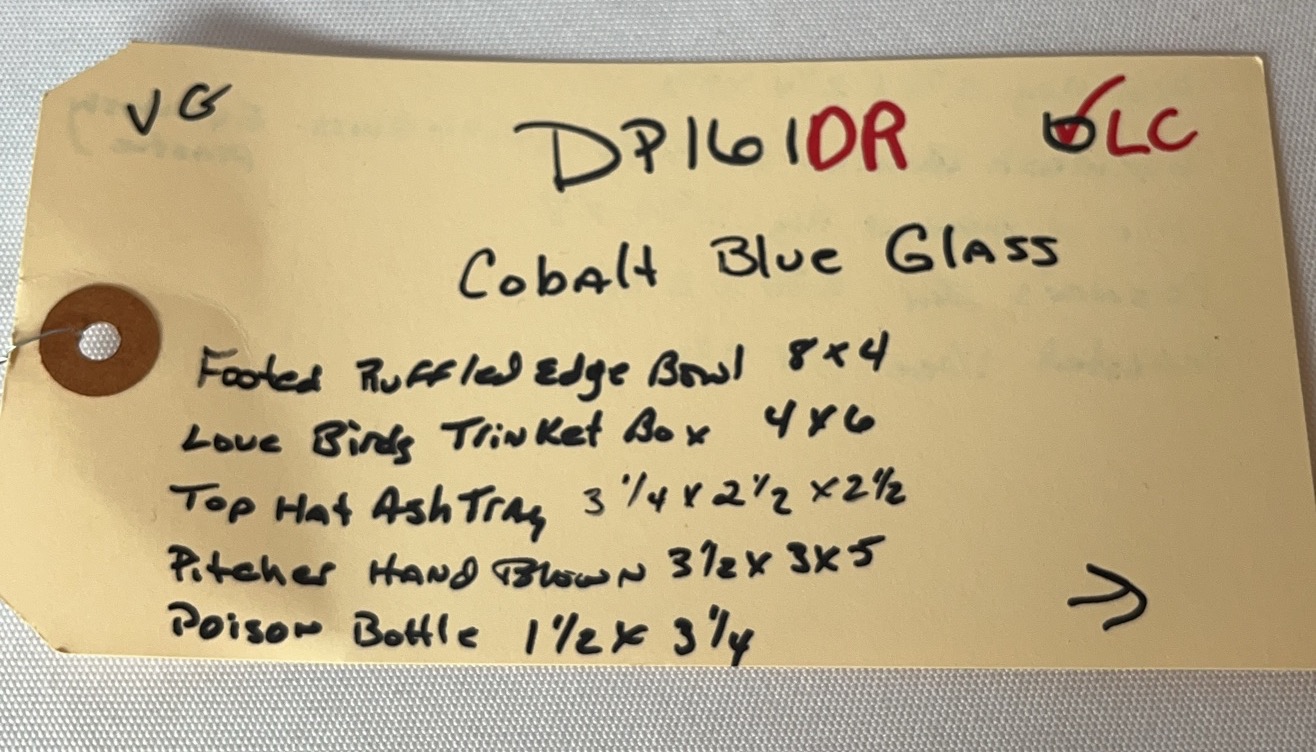 VG
DP161DR LC
Cobalt Blue Glass
Footed Ruffled Edge Bowl 8x4
Love Birds Trinket Box 4x6
Top Hat Ash Tray 3 1/4 x 2 1/2 x 2 1/2
Pitcher Hand Blown 3 1/2 x 3 x 5
Poison Bottle 1 1/2 x 3 1/4